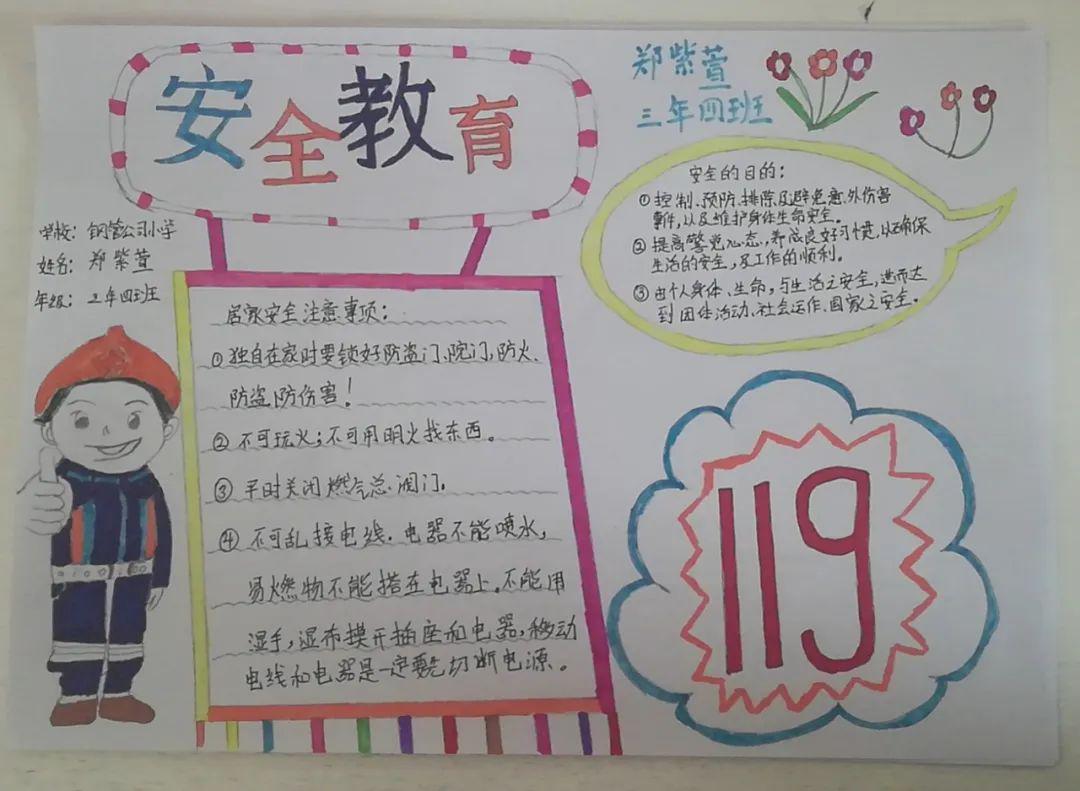 安全教育
郑紫萱
三年四班
学校：钢管公司小学
姓名：郑紫萱
年级：三年四班
安全的目的：
①控制、预防、排除及避免意外伤害
事件，以及维护身体生命安全。
②提高警觉心态，养成良好习惯，以确保
生活的安全，及工作的顺利。
③由个人身体、生命，与生活之安全，进而达
到团体活动、社会运作、国家之安全。
居家安全注意事项：
①独自在家时要锁好防盗门、院门，防火、
防盗防伤害！
②不可玩火；不可用明火找东西。
③平时关闭燃气总阀门。
④不可乱接电线．电器不能喷水，
易燃物不能搭在电器上。不能用
湿手，湿布摸开插座和电器，移动
电线和电器是一定要先切断电源。
119